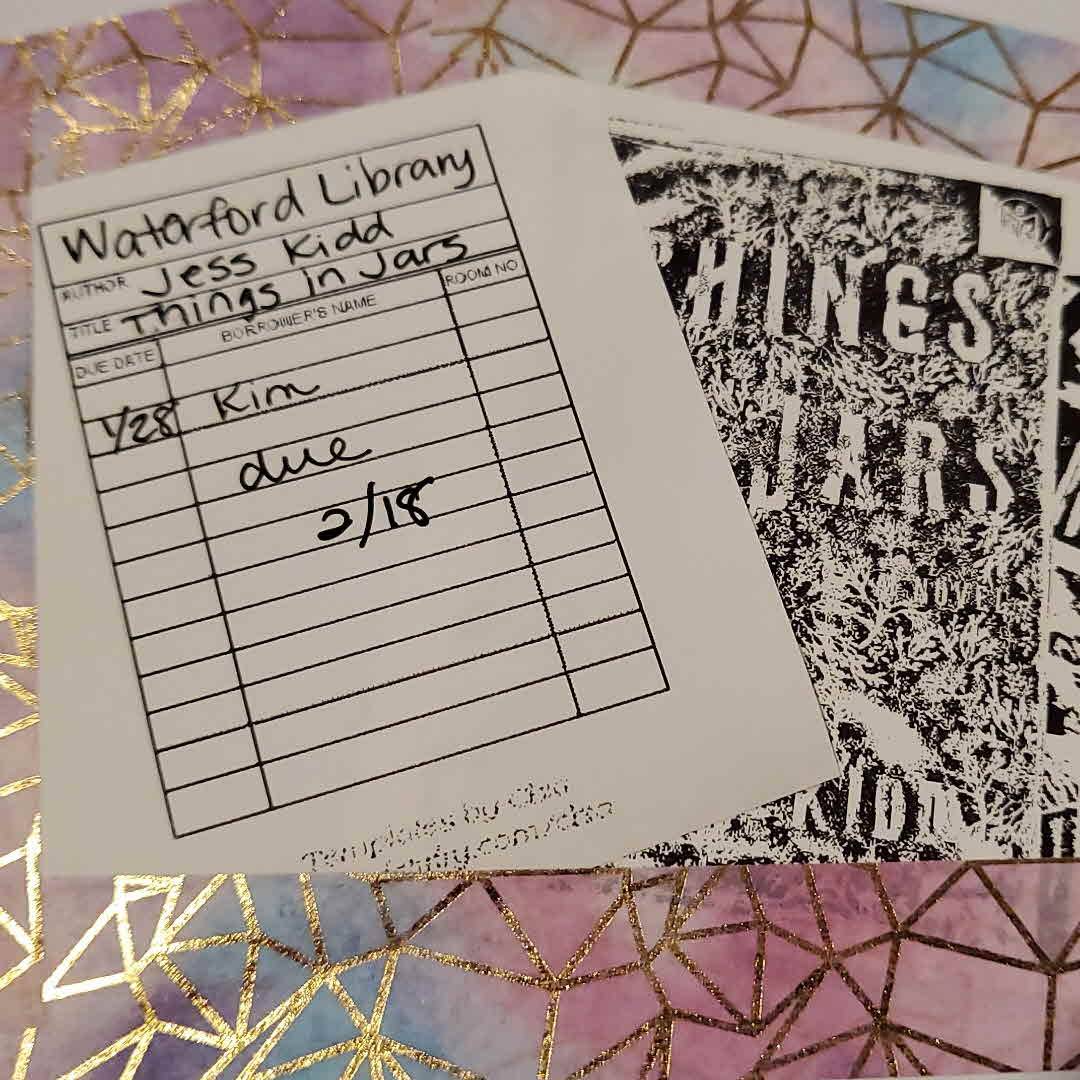 Waterford Library
AUTHOR Jess Kidd
TITLE Things In Jars
DUE DATE BORROWER'S NAME ROOM NO
1/28 Kim
due
2/18
Templates by
THINGS
JARS
NOVEL
KIDD